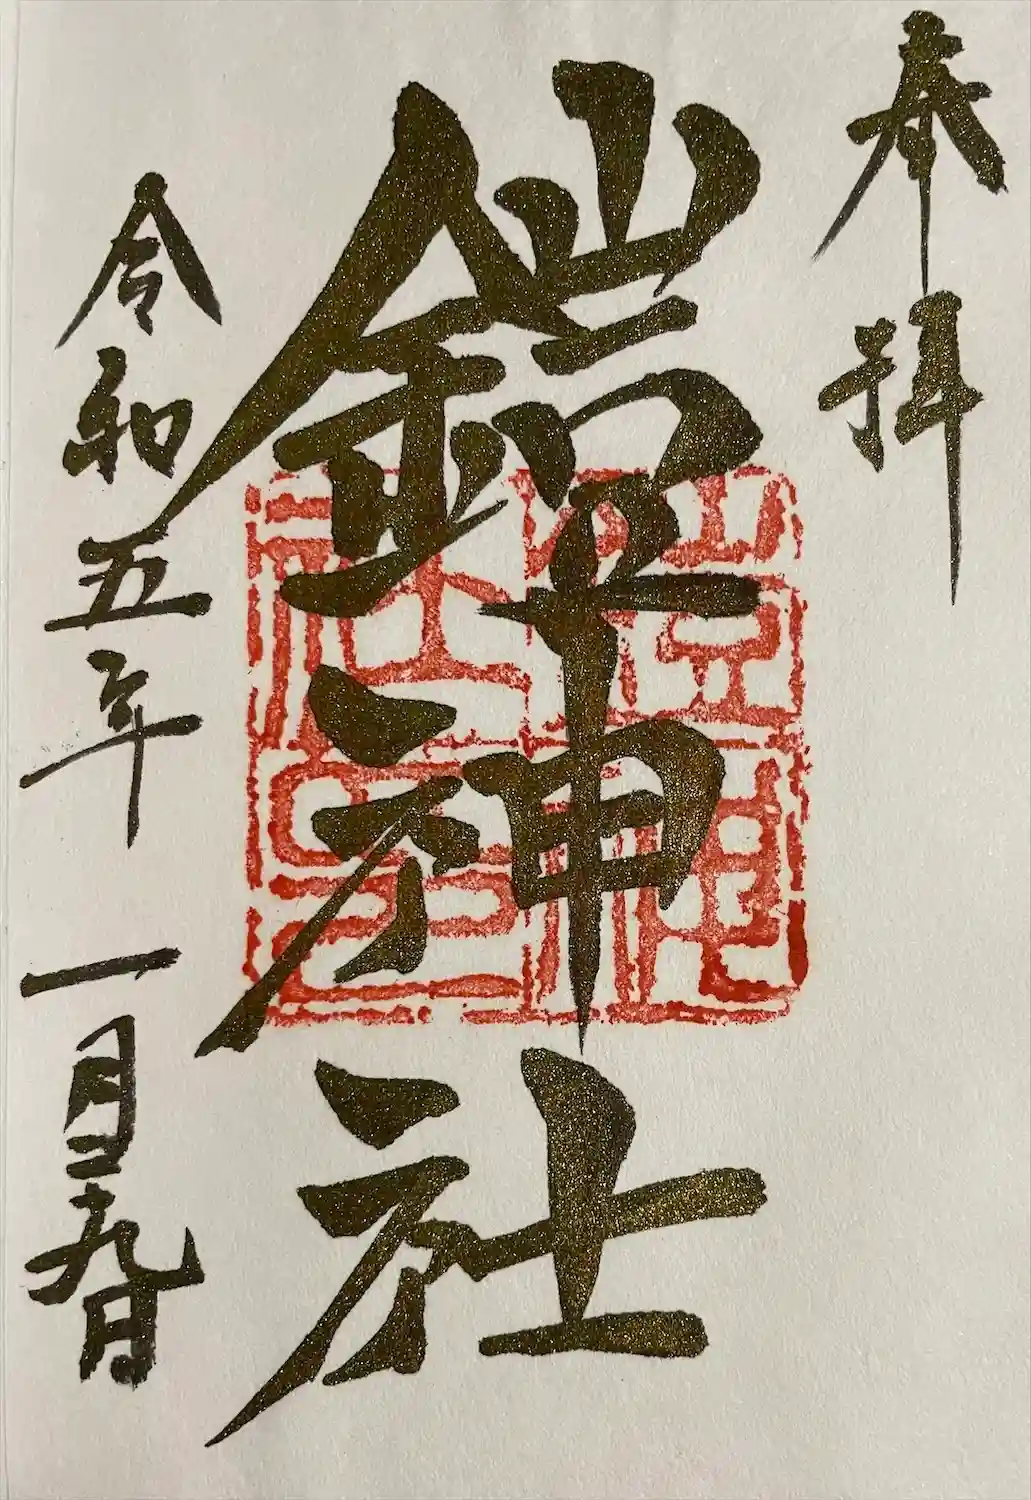 奉拝
鎧神社
令和五年一月二十九日